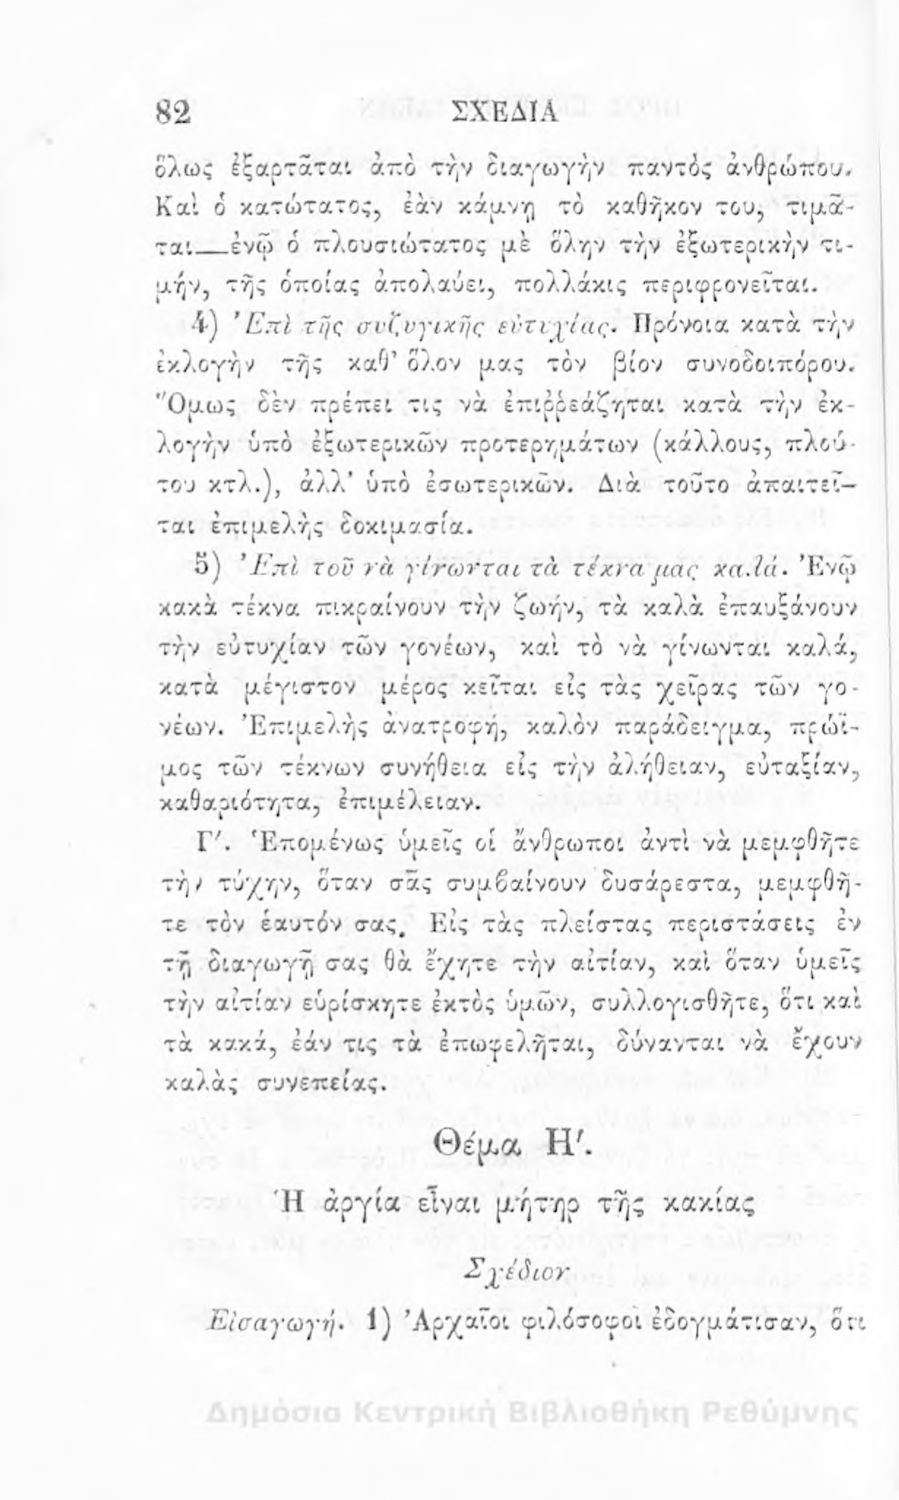 82 ΣΧΕΔΙΑ
ὅλως ἐξαρτᾶται ἀπὸ τὴν διαγωγὴν παντὸς ἀνθρώπου.
Καὶ ὁ κατώτατος, ἐὰν κάμνῃ τὸ καθῆκον του, τιμᾶ-
ται—ἐνῷ ὁ πλουσιώτατος μὲ ὅλην τὴν ἐξωτερικὴν τι-
μήν, τῆς ὁποίας ἀπολαύει, πολλάκις περιφρονεῖται.
4) Ἐπὶ τῆς συζυγικῆς εὐτυχίας. Πρόνοια κατὰ τὴν
ἐκλογὴν τῆς καθ’ ὅλον μας τὸν βίον συνοδοιπόρου.
Ὅμως δὲν πρέπει τις νὰ ἐπιῤῥεάζηται κατὰ τὴν ἐκ-
λογὴν ὑπὸ ἐξωτερικῶν προτερημάτων (κάλλους, πλού-
του κτλ.), ἀλλ’ ὑπὸ ἐσωτερικῶν. Διὰ τοῦτο ἀπαιτεῖ-
ται ἐπιμελὴς δοκιμασία.
5) Ἐπὶ τοῦ νὰ γίνωνται τὰ τέκνα μας καλά. Ἐνῷ
κακὰ τέκνα πικραίνουν τὴν ζωήν, τὰ καλὰ ἐπαυξάνουν
τὴν εὐτυχίαν τῶν γονέων, καὶ τὸ νὰ γίνωνται καλά,
κατὰ μέγιστον μέρος κεῖται εἰς τὰς χεῖρας τῶν γο-
νέων. Ἐπιμελὴς ἀνατροφή, καλὸν παράδειγμα, πρώϊ-
μος τῶν τέκνων συνήθεια εἰς τὴν ἀλήθειαν, εὐταξίαν,
καθαριότητα, ἐπιμέλειαν.
Γ′. Ἑπομένως ὑμεῖς οἱ ἄνθρωποι ἀντὶ νὰ μεμφθῆτε
τὴν τύχην, ὅταν σᾶς συμβαίνουν δυσάρεστα, μεμφθῆ-
τε τὸν ἑαυτόν σας. Εἰς τὰς πλείστας περιστάσεις ἐν
τῇ διαγωγῇ σας θὰ ἔχητε τὴν αἰτίαν, καὶ ὅταν ὑμεῖς
τὴν αἰτίαν εὑρίσκητε ἐκτὸς ὑμῶν, συλλογισθῆτε, ὅτι καὶ
τὰ κακά, ἐάν τις τὰ ἐπωφελῆται, δύνανται νὰ ἔχουν
καλὰς συνεπείας.
Θέμα Η′.
Ἡ ἀργία εἶναι μήτηρ τῆς κακίας
Σχέδιον
Εἰσαγωγή. 1) Ἀρχαῖοι φιλόσοφοι ἐδογμάτισαν, ὅτι
Δημόσια Κεντρική Βιβλιοθήκη Ρεθύμνης